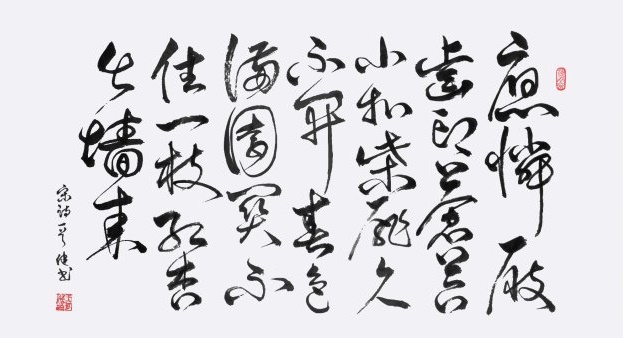 應憐屐
齒印蒼苔
小扣柴扉久
不開春色
滿園關不
住一枝紅杏
出墻來
宋詩一首